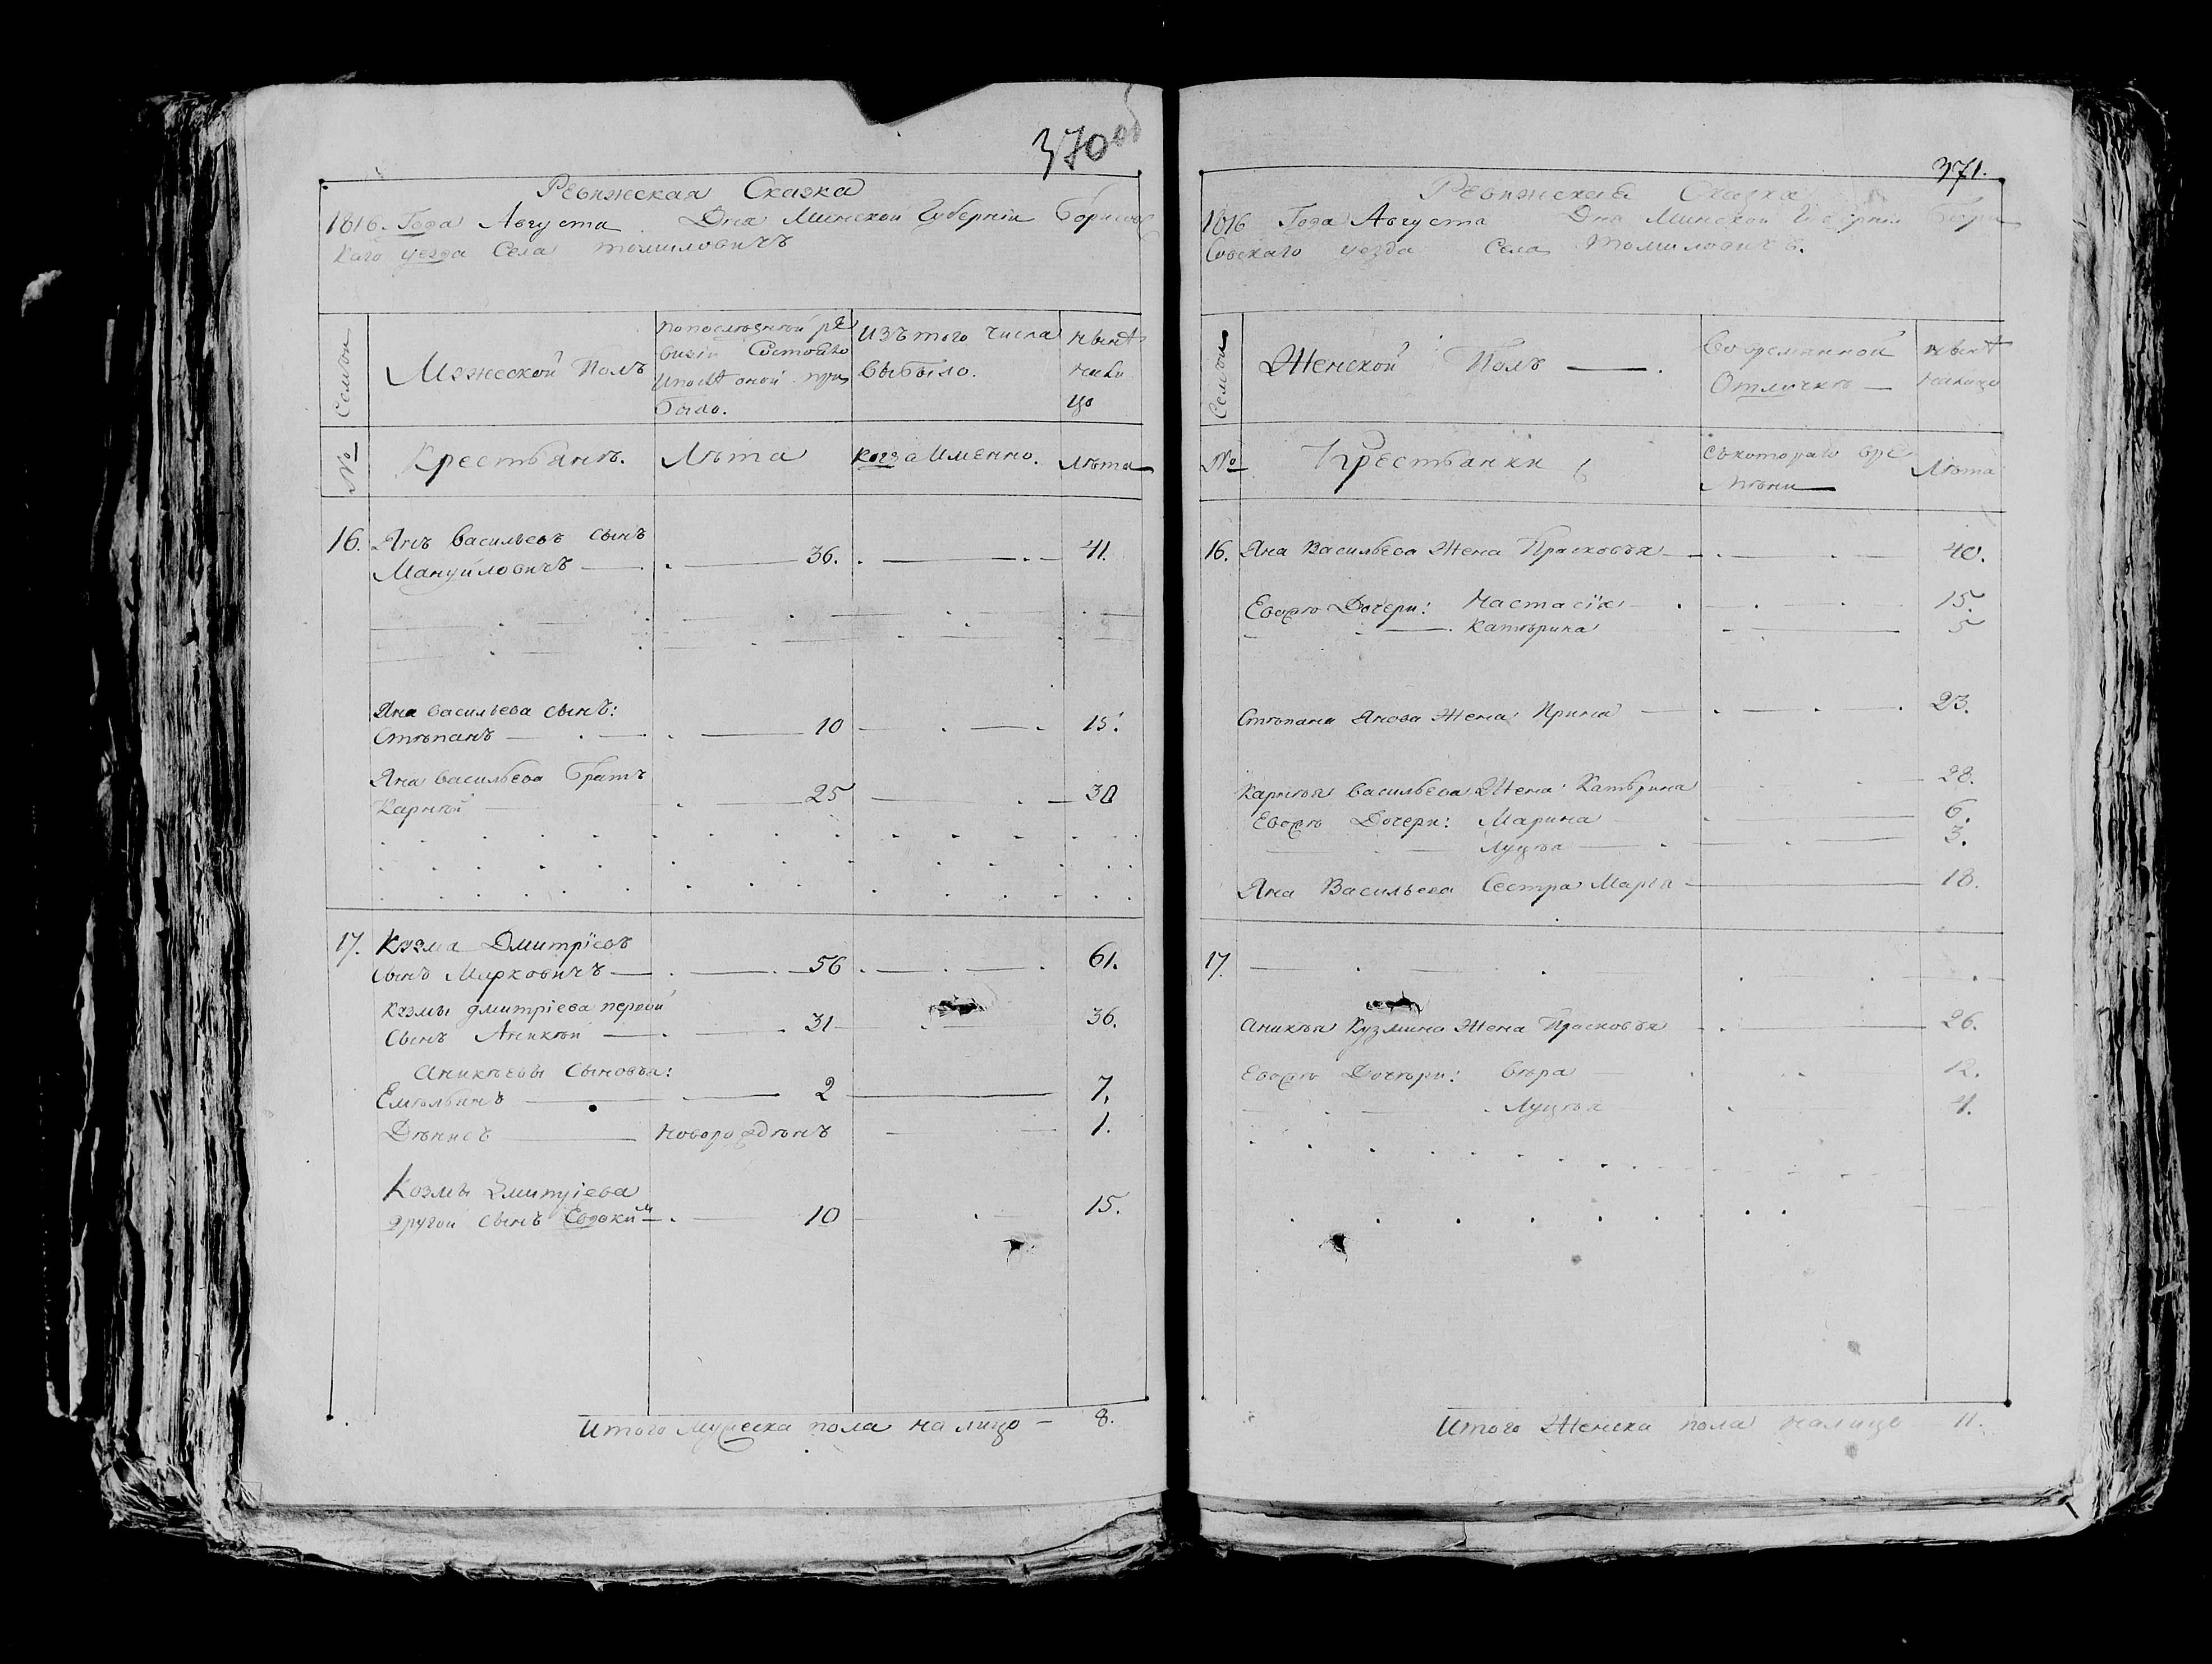 370 об
Ревижская Сказка
1816. Года Августа Дня Минской Губернiи Борисовс
каго уезда Села Томиловичъ
Семьи
Мужеской Полъ
попослѣдней ре
визiи Состояло
ипослѣ оной при
было.
Изъ того числа
выбыло.
нынѣ
нали
цо
№
Крестьянъ.
Лѣта
когда Именно.
Лѣта
16. Янъ Васильевъ сынъ
Мануйловичъ — 36. — 41.
Яна Васильева сынъ:
Стѣпанъ — 10 — 15.
Яна Васильева Братъ
Карнѣй — 25 — 30
17. Кузма Дмитрiевъ
Сынъ Марковичъ — 56 — 61.
Кузмы дмитрiева первой
Сынъ Аникѣй — 31 — 36.
Аникѣевы Сыновья:
Емѣльянъ — 2 — 7.
Дѣнисъ — новорождѣнъ — 1.
Козмы Дмитрiева
другой сынъ Евдокимъ — 10 — 15.
Итого Мужеска пола на лицо — 8.
371.
Ревижская Сказка
1816 Года Августа Дня Минской Губернiи Бори
Совскаго уезда Села Томиловичъ.
Семьи
Женской Полъ —.
Во времянной
Отлучкѣ —
нынѣ
налицо
№
Крестьянки
Съкотораго вре
мѣни —
Лѣта
16. Яна Васильева Жена Прасковья — 40.
Евожѣ Дочери: Настасiя — 15.
— Катѣрина — 5
Стѣпана Янова Жена Ирина — 23.
Карнѣя Васильева Жена Катѣрина — 28.
Евожѣ Дочери: Марина — 6.
— Луцѣя — 3.
Яна Васильева Сестра Марiя — 18.
17.
Аникѣя Кузмина Жена Прасковья — 26.
Евожѣ Дочѣри: Вѣра — 12.
— Луцѣя — 4.
Итого Женска пола налицо — 11.